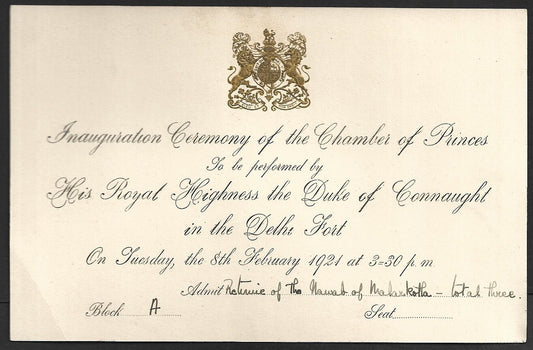 Inauguration Ceremony of the Chamber of Princes
To be performed by
His Royal Highness the Duke of Connaught
in the Delhi Fort
On Tuesday, the 8th February 1921 at 3=30 p.m.
Admit Retinue of the Nawab of Malerkotla - total three.
Block A Seat